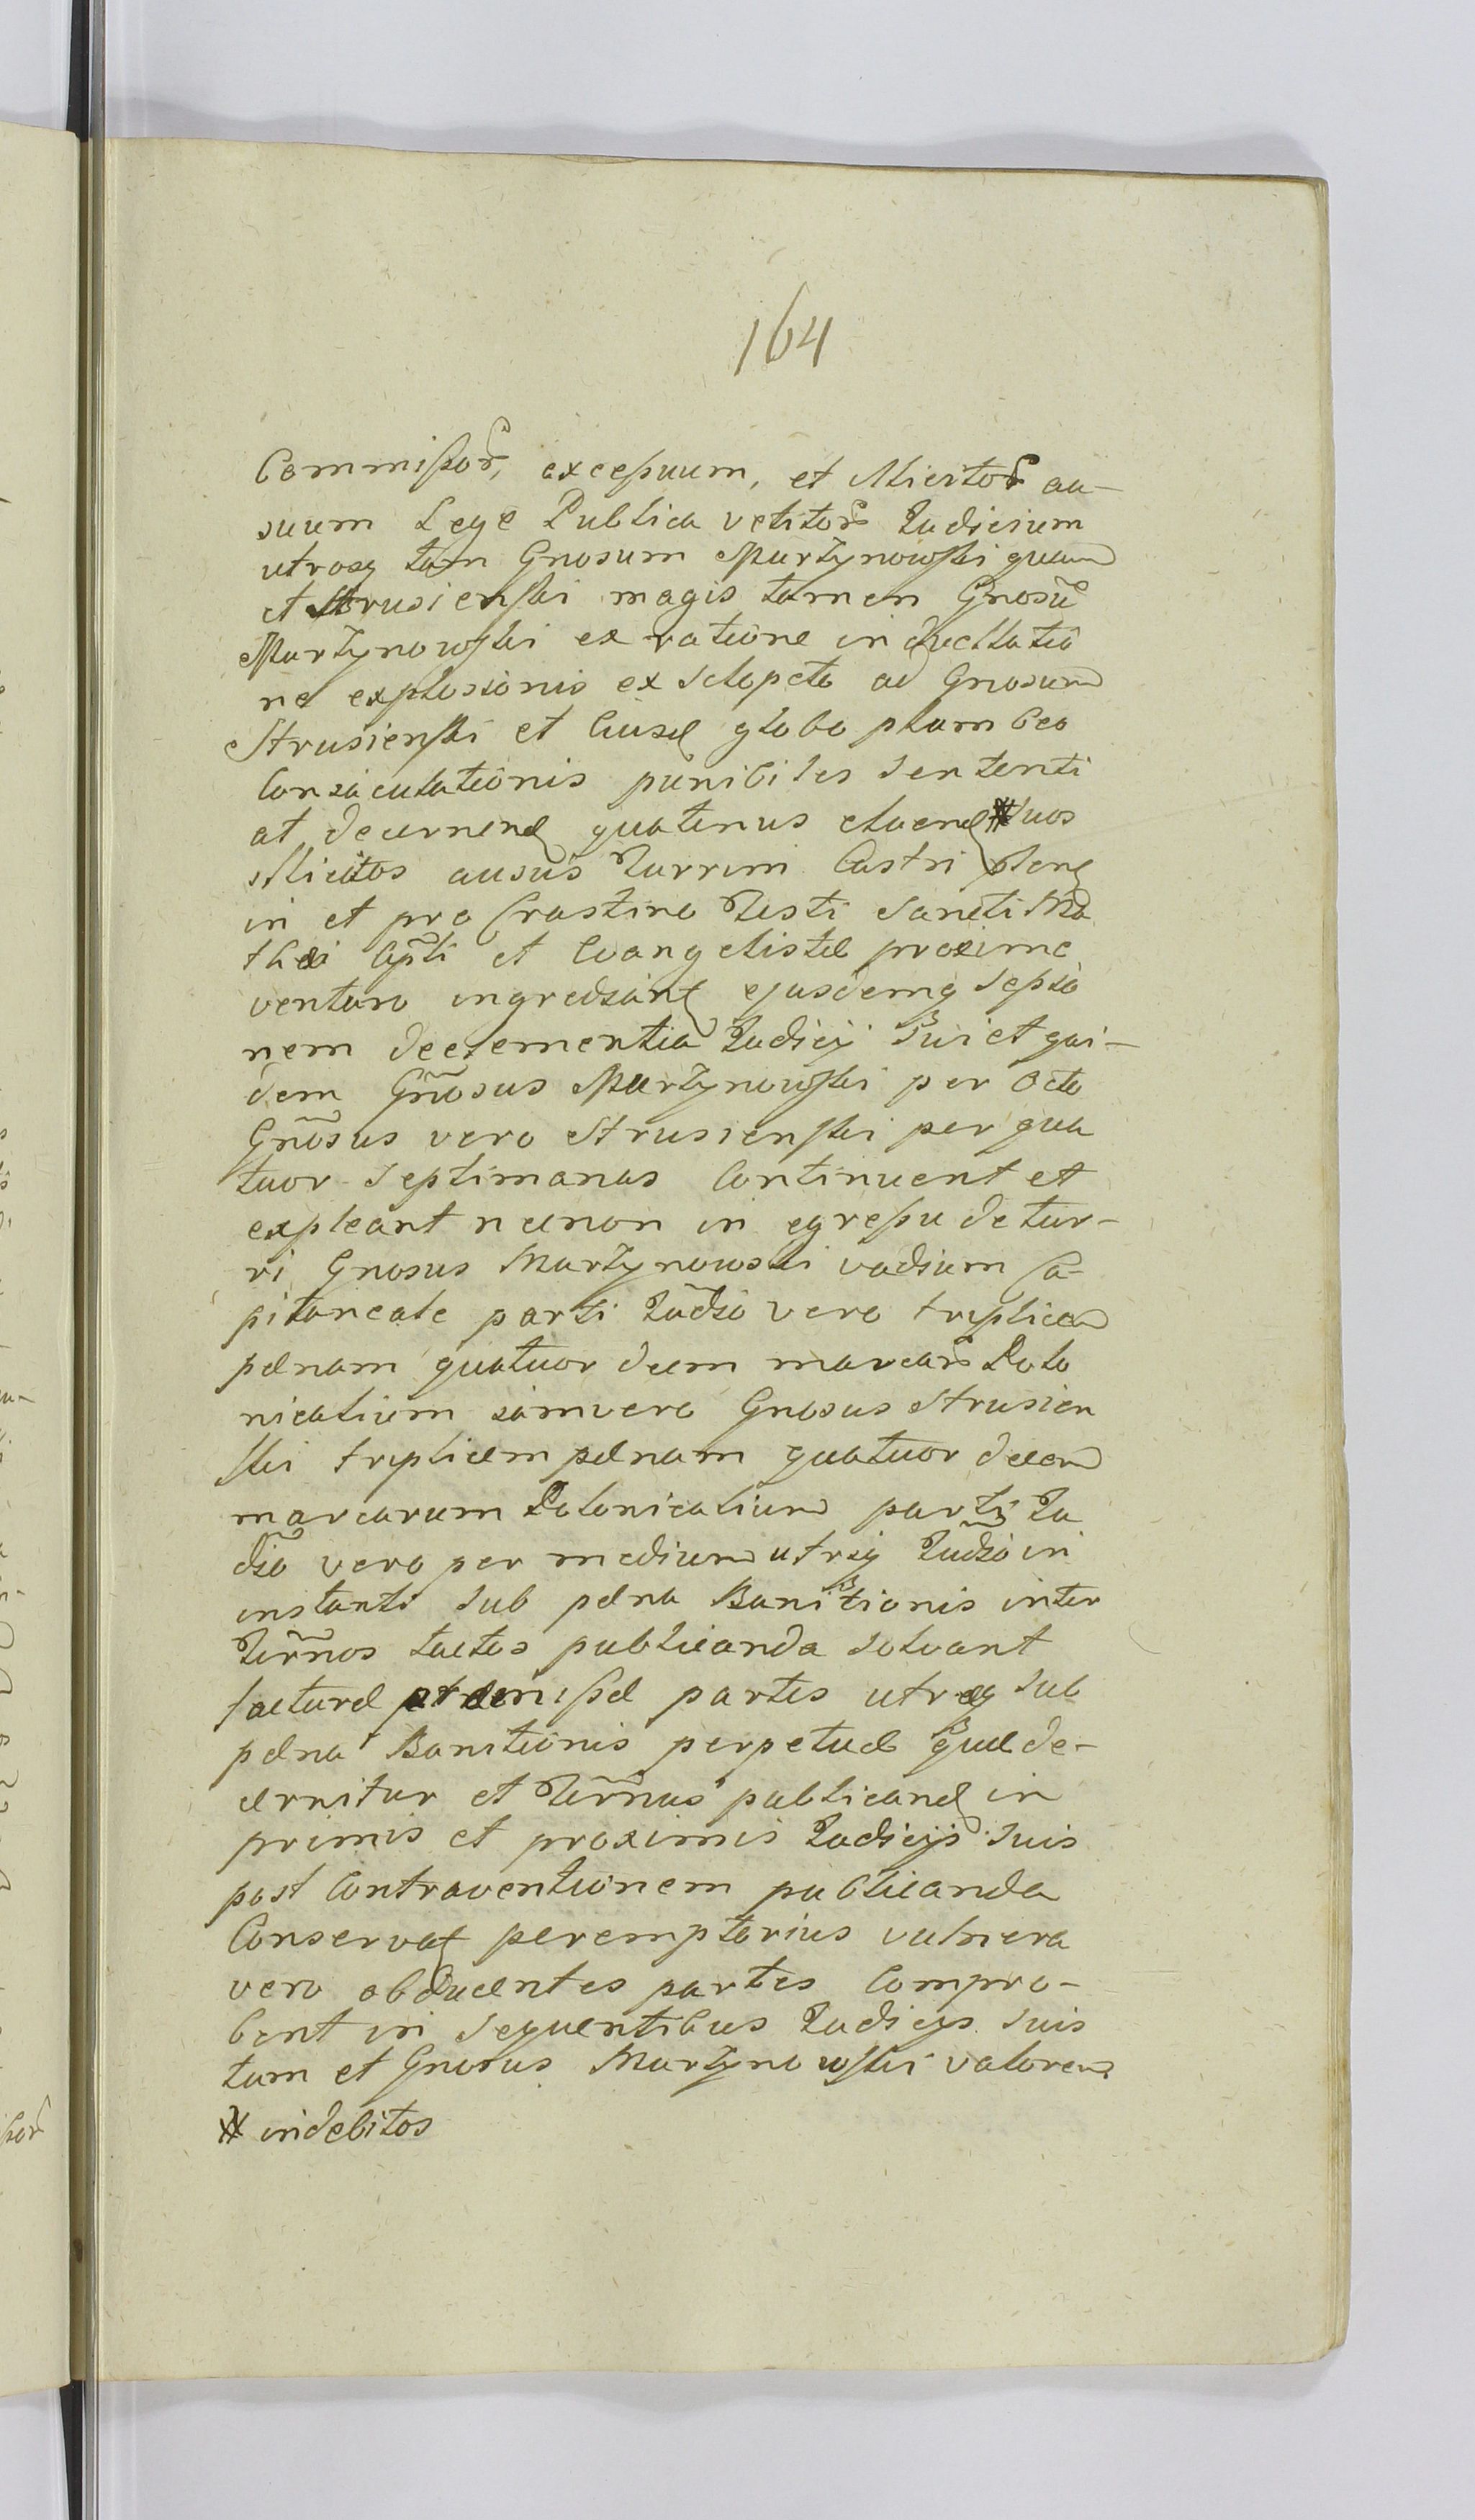 164
Commissor, excessuum, et illicitor au-
suum Lege Publica vetitor Judicium
utrosq tam Gnosum Martynowski quam
et Strusienski magis tamen Gnosu
Martynowski ex ratione in duellatio
ne explosionis ex sclopeto ad Gnosum
Strusienski et Eiusd globo plumbeo
Conjaculationis punibiles sententi
at decernend quatenus eluend # suos
illicitos ausus Turrim Castri
in et pro Crastino Festi Sancti Ma
thæi Apli et Evangelistæ proxime
venturo ingrediant ejusdemq sessio
nem decrementia Judicij sui et qui-
dem Gnosus Martynowski per octo
Gnosus vero Strusienski per qua
tuor Septimanas Continuent et
expleant necnon in egressu de tur-
ri Gnosus Martynowski vadium Ca-
pitaneale parti Judio vero triplicem
pænam quatuor decem marcar Polo
nicalium jamvero Gnosus Strusien
ski triplicem pænam quatuor decem
marcarum Polonicalium parti Ju
dio vero per medium utrisq Judio in
instanti sub pæna Banitionis inter
Termos tactos publicanda solvant
facturæ præmissæ partes utræq sub
pæna Banitionis perpetuæ quæ de-
cernitur et Termus publicand in
primis et proximis Judicijs suis
post Contraventionem publicanda
Conservat peremptorius vulnera
vero obducentes partes Compro-
bent in sequentibus Judicijs suis
tum et Gnosus Martynowski valorem
# indebitos